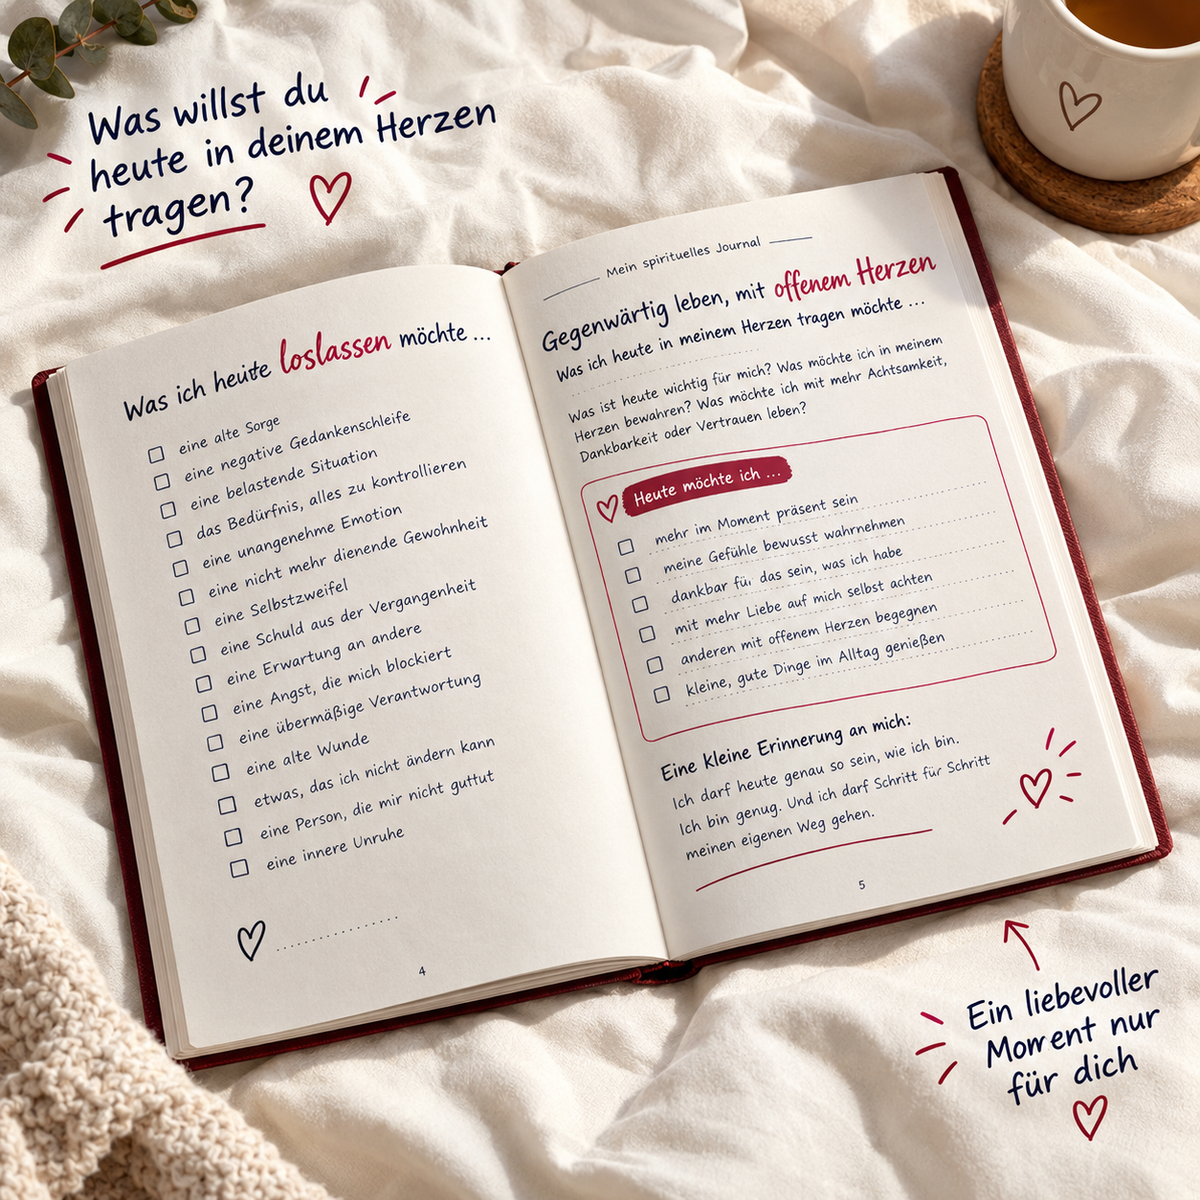 Was willst du
heute in deinem Herzen
tragen?
Was ich heute loslassen möchte ...
eine alte Sorge
eine negative Gedankenschleife
eine belastende Situation
das Bedürfnis, alles zu kontrollieren
eine unangenehme Emotion
eine nicht mehr dienende Gewohnheit
eine Selbstzweifel
eine Schuld aus der Vergangenheit
eine Erwartung an andere
eine Angst, die mich blockiert
eine übermäßige Verantwortung
eine alte Wunde
etwas, das ich nicht ändern kann
eine Person, die mir nicht guttut
eine innere Unruhe
4
Mein spirituelles Journal
Gegenwärtig leben, mit offenem Herzen
Was ich heute in meinem Herzen tragen möchte ...
Was ist heute wichtig für mich? Was möchte ich in meinem
Herzen bewahren? Was möchte ich mit mehr Achtsamkeit,
Dankbarkeit oder Vertrauen leben?
Heute möchte ich ...
mehr im Moment präsent sein
meine Gefühle bewusst wahrnehmen
dankbar für das sein, was ich habe
mit mehr Liebe auf mich selbst achten
anderen mit offenem Herzen begegnen
kleine, gute Dinge im Alltag genießen
Eine kleine Erinnerung an mich:
Ich darf heute genau so sein, wie ich bin.
Ich bin genug. Und ich darf Schritt für Schritt
meinen eigenen Weg gehen.
5
Ein liebevoller
Moment nur
für dich